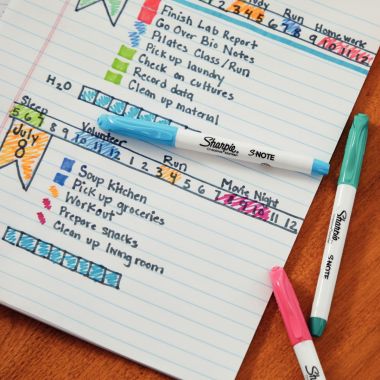 Study Run Homework
3 4 5 6 7 8 9 10 11 12
Finish Lab Report
Go Over Bio Notes
Pilates Class/Run
Pick up laundry
Check on cultures
Record data
Clean up material
H2O
Sleep
5 6 7 8 9 10 11 12 1 2 3 4 5 6 7 8 9 10 11 12
Volunteer Run Movie Night
July
8
Soup Kitchen
Pick up groceries
Workout
Prepare snacks
Clean up living room
Sharpie
S·NOTE
Sharpie
S·NOTE
Sharpie